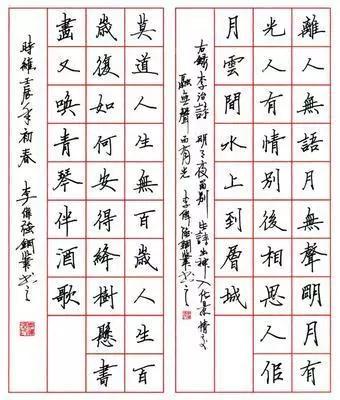 離人無語月無聲明月有
光人有情別後相思人佀
月雲間水上到層城
右録李冶詩 明月夜留別 此詩出神入化景情交
融無聲而有光 李偉強鋼筆书之
莫道人生無百歲人生百
歲復如何安得絳樹懸書
盡又喚青琴伴酒歌
時維壬辰年初春 李偉強鋼筆书之